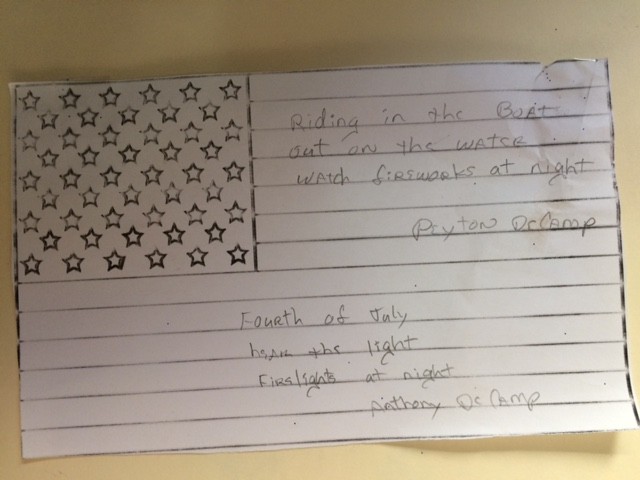 Riding in the Boat
out on the water
watch fireworks at night
Peyton DeCamp
Fourth of July
hear the light
Firelights at night
Anthony DeCamp